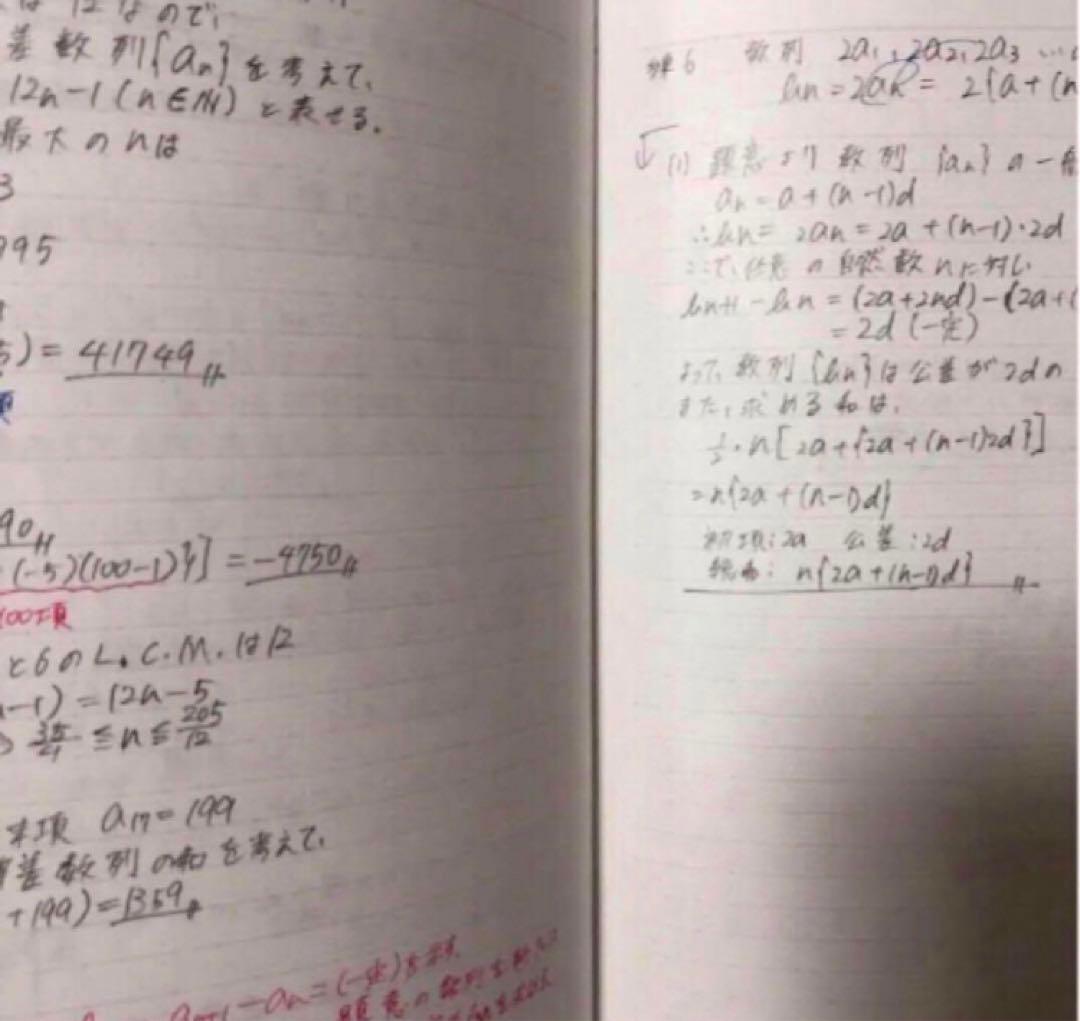 は12なので、
差数列{an}を考えて、
12n-1(n∈N)と表せる。
最大のnは
3
995
5) = 41749
90
(-5)(100-1)}] = -4750
100項
と6のL.C.M.は12
-1) = 12n-5
≦n≦205/12
末項 a17=199
差数列の和を考えて、
+199)=1359
an+1-an=(一定)を示す。
題意の数列を
練6 数列 2a1, 2a2, 2a3 ...
bn=2an= 2{a+(n
(1) 題意より数列 {an}の一般
an=a+(n-1)d
∴bn= 2an=2a+(n-1)・2d
ここで、任意の自然数nに対し
bn+1-bn=(2a+2nd)-(2a+(
=2d(一定)
よって、数列{bn}は公差が2dの
また、求める和は、
1/2・n[2a+{2a+(n-1)2d}]
=n{2a+(n-1)d}
初項:2a 公差:2d
総和: n{2a+(n-1)d}